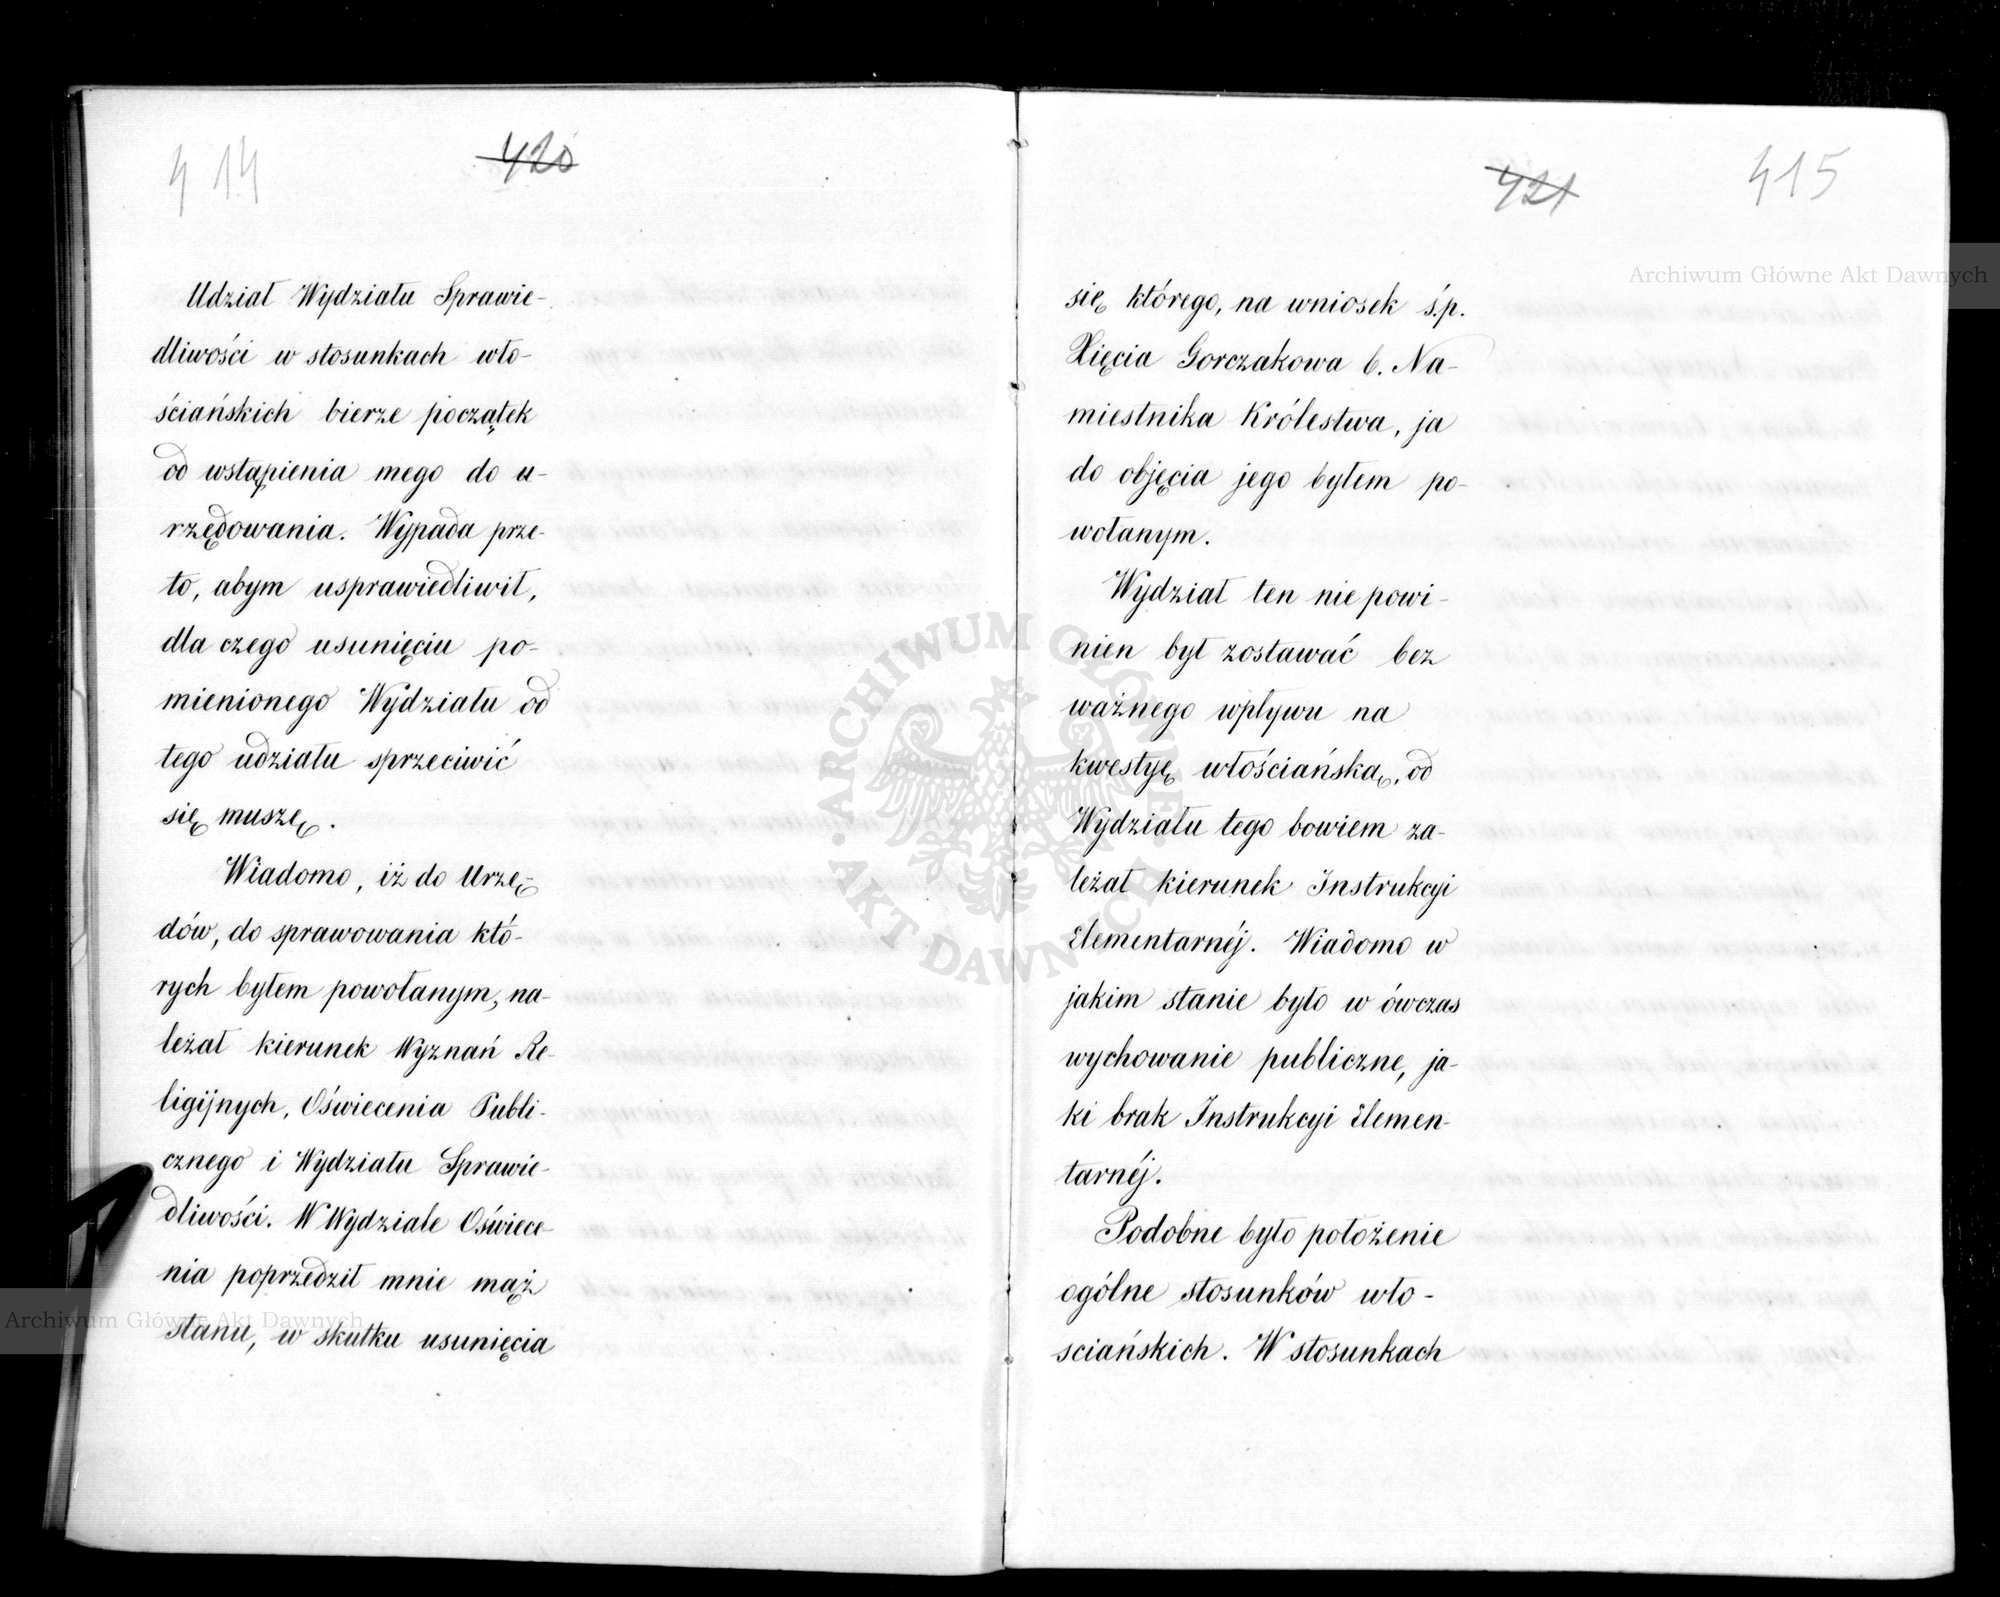 414
420
Udział Wydziału Sprawie-
dliwości w stosunkach wło-
ściańskich bierze początek
od wstąpienia mego do u-
rzędowania. Wypada prze-
to, abym usprawiedliwił,
dla czego usunięciu po-
mienionego Wydziału od
tego udziału sprzeciwić
się muszę.
Wiadomo, iż do Urzę-
dów, do sprawowania któ-
rych byłem powołanym, na-
leżał kierunek Wyznań Re-
ligijnych, Oświecenia Publi-
cznego i Wydziału Sprawie-
dliwości. W Wydziale Oświece-
nia poprzedził mnie mąż
stanu, w skutku usunięcia
421
415
się którego, na wniosek ś.p.
Xięcia Gorczakowa b. Na-
miestnika Królestwa, ja
do objęcia jego byłem po-
wołanym.
Wydział ten nie powi-
nien był zostawać bez
ważnego wpływu na
kwestyę włościańską, od
Wydziału tego bowiem za-
leżał kierunek Instrukcyi
Elementarnéj. Wiadomo w
jakim stanie było w ówczas
wychowanie publiczne, ja-
ki brak Instrukcyi Elemen-
tarnéj.
Podobne było położenie
ogólne stosunków wło-
sciańskich. W stosunkach
Archiwum Główne Akt Dawnych
ARCHIWUM GŁÓWNE
AKT DAWNYCH
Archiwum Główne Akt Dawnych